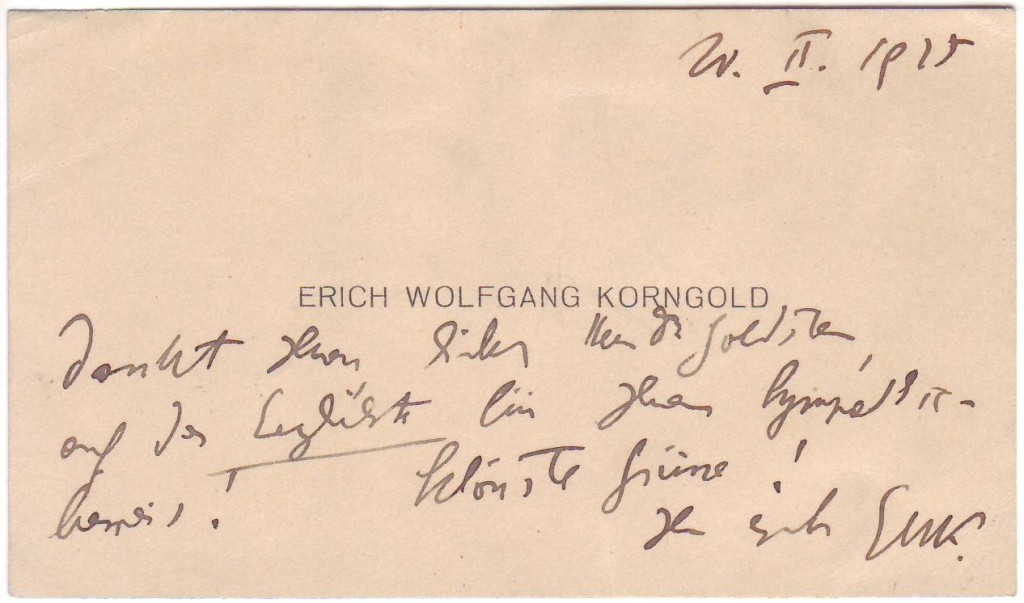 II. 1925
ERICH WOLFGANG KORNGOLD
dankt Ihnen lieber Herr Dr Goldstein,
auf das herzlichste für Ihren Sympathie-
beweis! Schönste Grüsse!
Ihr EWK.